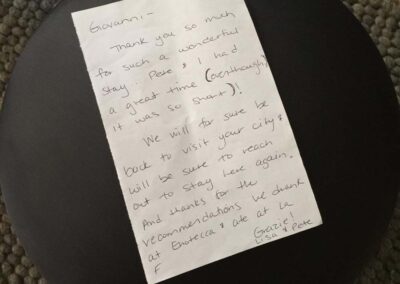 Giovanni -
Thank you so much
for such a wonderful
stay. Pete & I had
a great time (even though
it was so short)!
We will for sure be
back to visit your city &
will be sure to reach
out to stay here again.
And thanks for the
recommendations we drank
at Enoteca & ate at La
F
Grazie!
Lisa & Pete